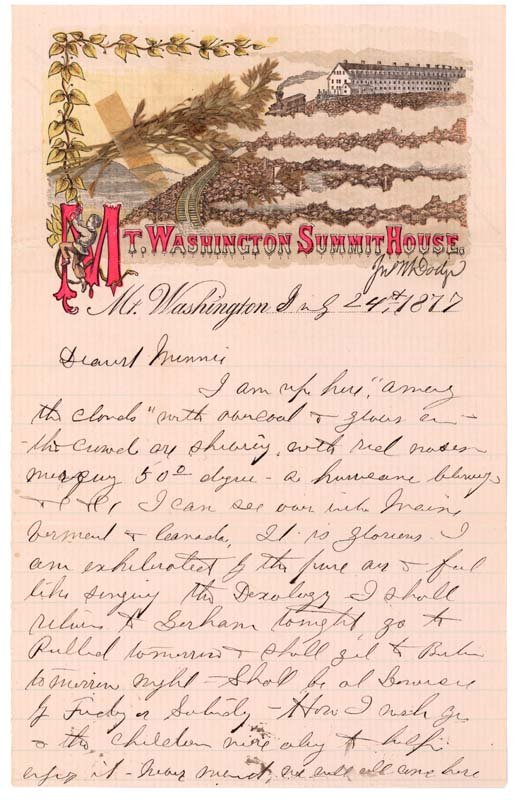 Mt. Washington Summit House.
Jno W Dodge
Mt. Washington July 24th, 1877
Dearest Minnie
I am up here, "among
the clouds" with overcoat & gloves on -
- the crowd are shivering, with red noses
mercury 50° degree - a hurricane blowing
I can see over into Maine
Vermont & Canada. It is glorious. I
am exhilarated by the pure air & feel
like singing the Doxology - I shall
return to Gorham tonight, go to
tomorrow & shall get to
tomorrow night - Shall be at
Friday or Saturday - How I wish you
& the children were along to help
enjoy it - never mind, we will all come here